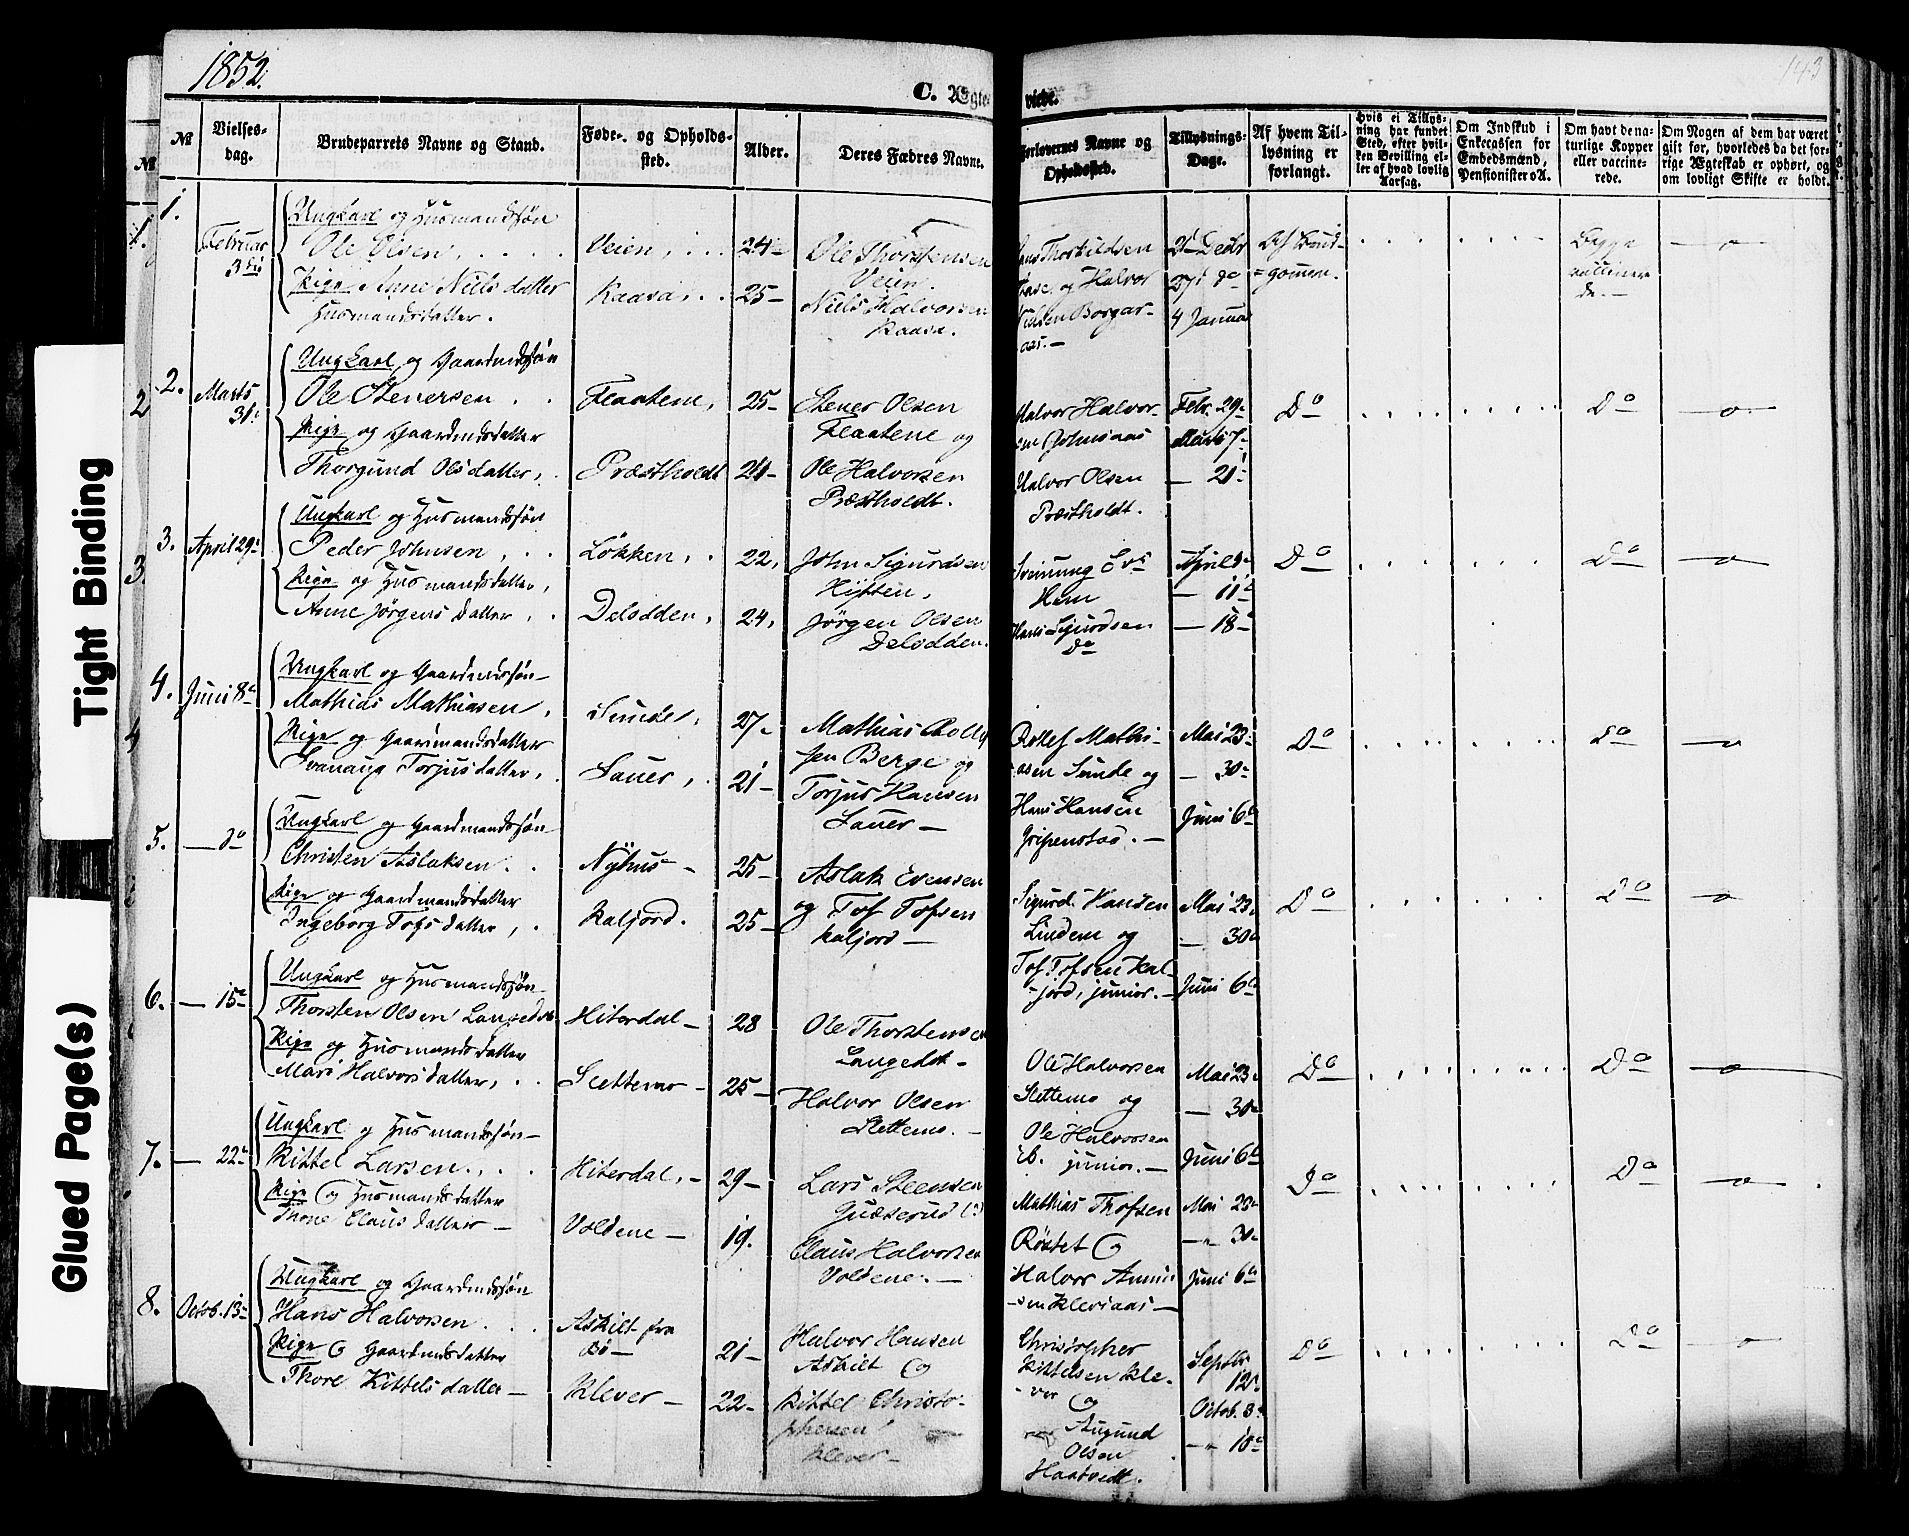 1852.
143
C. Ægte
viede.
№
№
Vielses-
dag.
Brudeparrets Navne og Stand.
Føde- og Opholds-
sted.
Alder.
Deres Fædres Navne.
Forlovernes Navne og
Opholdssted.
Tillysnings-
Dage.
Af hvem Til-
lysning er
forlangt.
Hvis ei Tillys-
ning har fundet
Sted, efter hvil-
ken Bevilling el-
ler af hvad lovlig
Aarsag.
Om Indskud i
Enkecassen for
Embedsmænd,
Pensionister o A.
Om havt de na-
turlige Kopper
eller vaccine-
rede.
Om Nogen af dem har været
gift før, hvorledes da det for-
rige Ægteskab er ophørt, og
om lovligt Skifte er holdt.
1.
1.
Februar
3die
Ungkarl og Husmandssøn
Ole Olsen,
Pige, Anne Niels datter
Husmandsdatter.
Veien,
Kaasa,
24-
25-
Ole Thorstensen
Veien.
Niels Halvorsen
Kaasa.
Thorkildsen
og Halvor
Nielsen Borgar-
aas.-
Decbr
4 Januar
Af Brud-
=gommen.
Begge
vaccinere
de.-
2
2.
Marts
31
Ungkarl og Gaardmdssøn
Ole Stenersen
Pige og Gaardmdsdatter
Thorgund Olsdatter,
Flaatene,
Præstholdt
25-
24-
Stener Olsen
Flaatene og
Ole Halvorsen
Præstholdt.
Halvor Halvor-
sen Johnsaas
Halvor Olsen
Præstholdt.
Febr. 29
Marts 7
- 21
Do
Do
3.
3.
April 29
Ungkarl og Husmandssøn
Peder Johnsen,
Pige og Husmandsdatter,
Anne Jørgens datter,
Løkken,
Delodden,
22,
24,
John Sigurdsen
Jørgen Olsen
Delodden.
Hem
Hans Sigurdsen
Do
April
- 11
- 18
Do
Do
4
4.
Juni 8
Ungkarl og Gaardmdssøn-
Mathias Mathiasen,
Pige og Gaardmandsdatter
Svanaug Torjusdatter,
Sunde,
Sauer,
27-
21-
Mathias
sen Berge og
Torjus Hansen
Sauer-
Detlef Mathi-
asen Sunde og
Hans Hansen
Gripenstad.-
Mai 23
- 30
Juni 6
Do
Do
5.
- do
Ungkarl og Gaardmandssøn
Christen Aslaksen
Pige og Gaardmandsdatter
Ingeborg Tofsdatter,
Nyhus-
Kaljord.
25-
25-
Aslak Evensen
og Tof Tofsen
Kaljord-
Sigurd Hansen
Lindem og
Tof Tofsen Kal-
jord, junior.-
Mai 23
- 30
Juni 6
Do
Do
6.
- 15
Ungkarl og Husmandssøn
Thorsten Olsen
Pige og Husmandsdatter
Mari Halvorsdatter,
Hiterdal-
Slettemo-
28
25-
Ole Thorstensen
Halvor Olsen
Slettemo.-
Ole Halvorsen
Slettemo og
Ole Halvorsen
ib. junior.-
Mai 23
- 30
Juni 6
Do
Do
7.
- 22
Ungkarl og Husmandssøn-
Kittel Larsen.,
Pige og Husmandsdatter
Thone Clausdatter-
Hiterdal,-
Voldene-
29-
19.
Lars Steensen
Claus Halvorsen
Voldene.-
Mathias Thofsen
og
Halvor
Kleviaas-
Mai 23
- 30
Juni 6
Do
Do
8.
Octob. 13
Ungkarl og Gaardmdssøn
Hans Halvorsen
Pige og Gaardmdsdatter
Thore Kittelsdatter-
Askilt fra
Bø-
Klever-
21-
22-
Halvor Hansen
Askilt og
Kittel Christo-
phersen
Klever-
Christopher
Kittelsen Kle-
ver og
Augund
Olsen
Haatvedt.
Septbr
12
Octob. 3
- 10
Do
Do
Tight Binding
Glued Page(s)